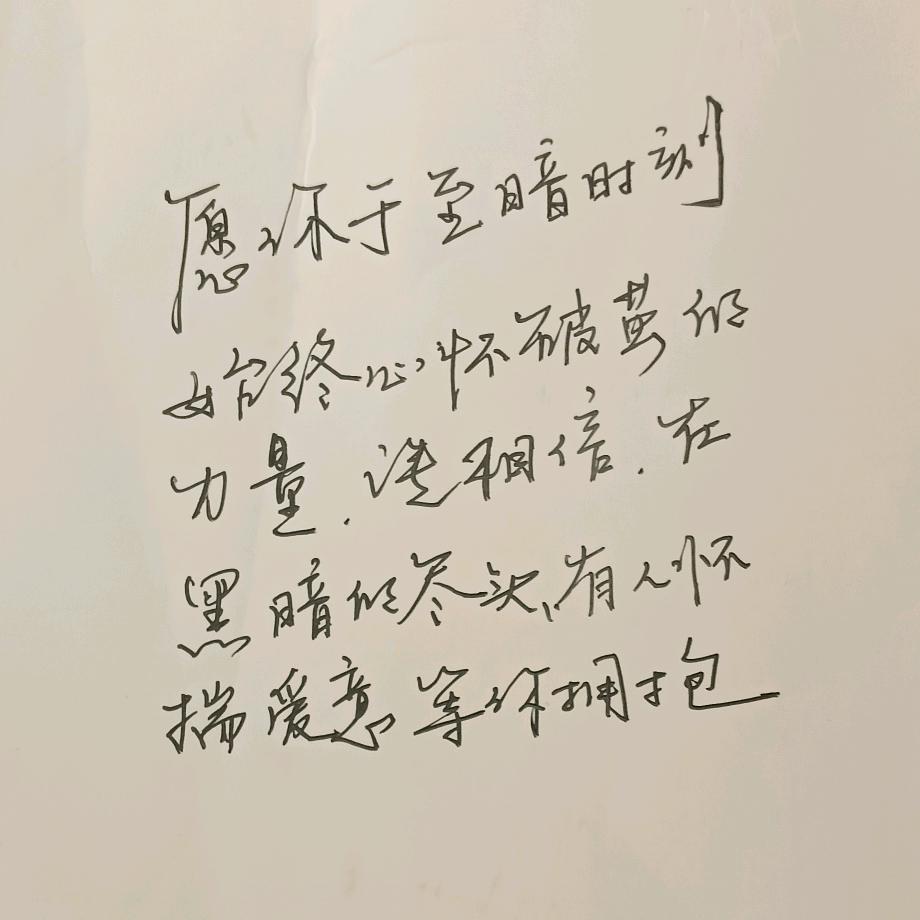 愿你于至暗时刻
始终心怀破茧的
力量.请相信.在
黑暗的尽头、有人怀
揣爱意等你拥抱